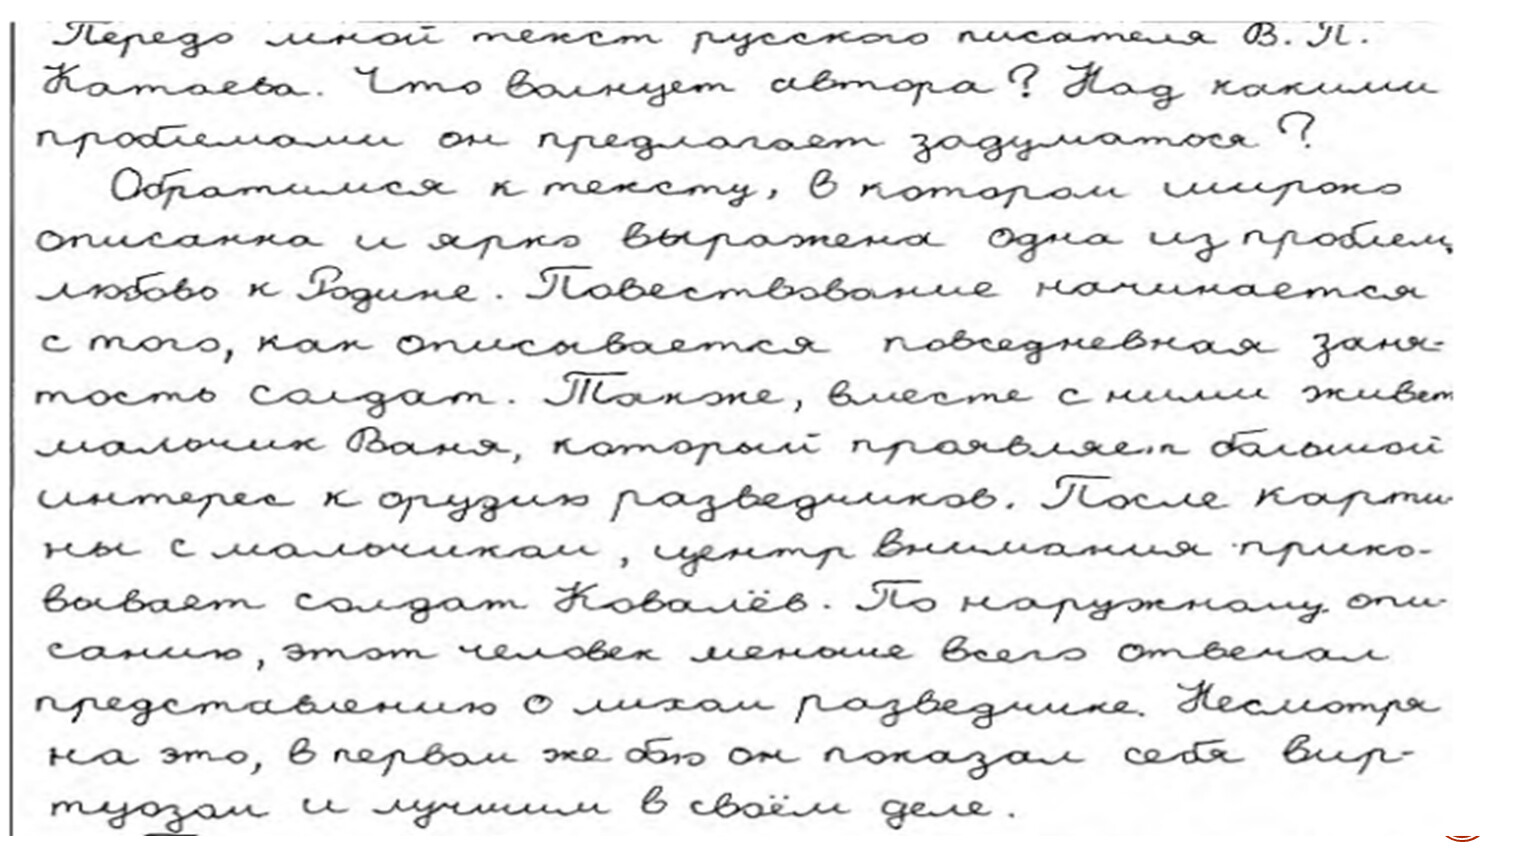 Передо мной текст русского писателя В. П.
Катаева. Что волнует автора? Над какими
проблемами он предлагает задуматься?
Обратимся к тексту, в котором широко
описанна и ярко выражена одна из проблем,
любовь к Родине. Повествование начинается
с того, как описывается повседневная заня-
тость солдат. Также, вместе с ними живет
мальчик Ваня, который проявляет большой
интерес к орудию разведчиков. После карти-
ны с мальчиком, центр внимания прико-
вывает солдат Ковалёв. По наружному опи-
санию, этот человек меньше всего отвечал
представлению о лихом разведчике. Несмотря
на это, в первом же бою он показал себя вир-
туозом и лучшим в своём деле.